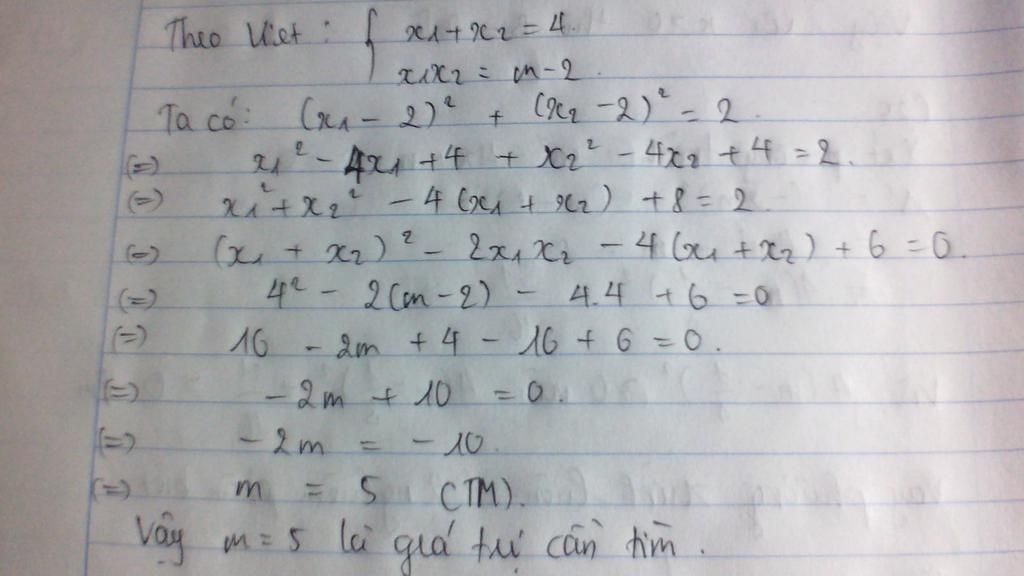 Theo Viet : { x1 + x2 = 4.
x1x2 = m - 2.
Ta có: (x1 - 2)² + (x2 - 2)² = 2.
(=) x1² - 4x1 + 4 + x2² - 4x2 + 4 = 2.
(=) x1² + x2² - 4(x1 + x2) + 8 = 2
(=) (x1 + x2)² - 2x1x2 - 4(x1 + x2) + 6 = 0.
(=) 4² - 2(m - 2) - 4.4 + 6 = 0
(=) 16 - 2m + 4 - 16 + 6 = 0.
(=) - 2m + 10 = 0.
(=) - 2m = - 10.
(=) m = 5 (TM).
Vậy m = 5 là giá trị cần tìm.